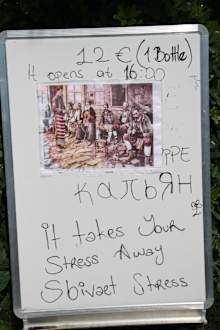 12 € (1 Bottle)
It opens at 16:00
PPE
КАЛЬЯН
it takes your
stress Away
Sbivaet Stress